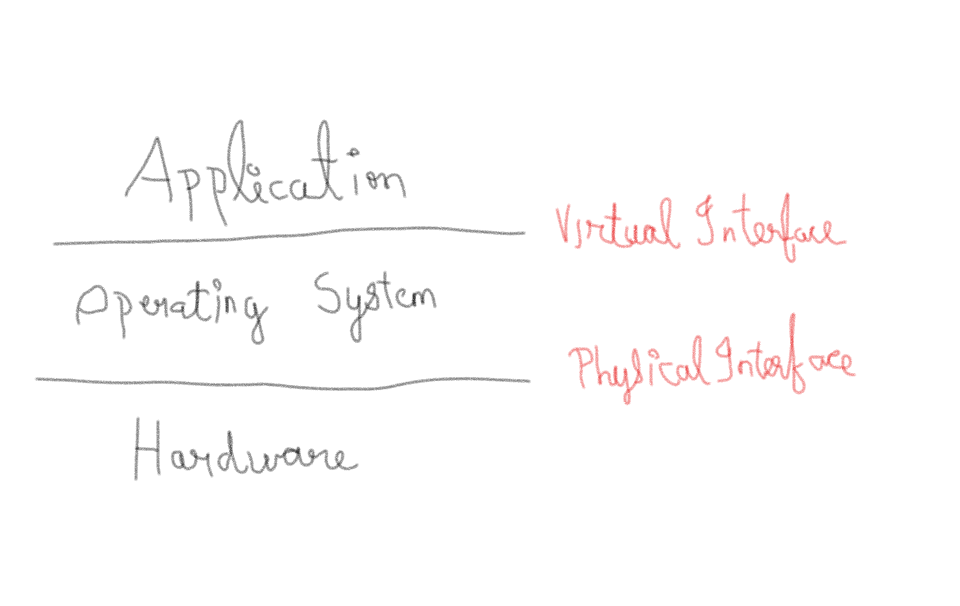 Application
Virtual Interface
Operating System
Physical Interface
Hardware